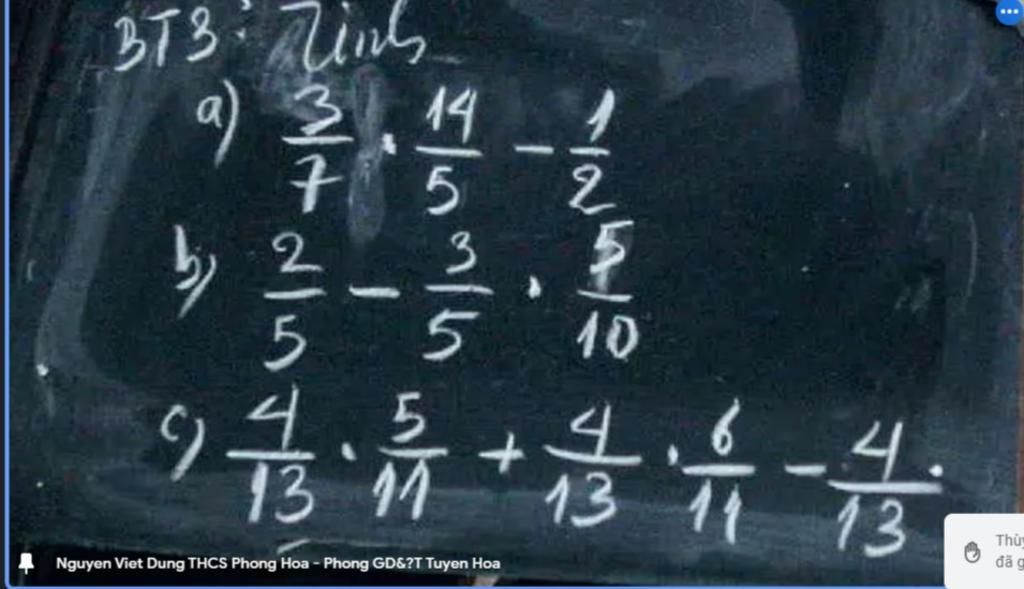 BT3: Tính
a) 3/7 . 14/5 - 1/2
b) 2/5 - 3/5 . 5/10
c) 4/13 . 5/11 + 4/13 . 6/11 - 4/13 .
Nguyen Viet Dung THCS Phong Hoa - Phong GD&?T Tuyen Hoa
đã g